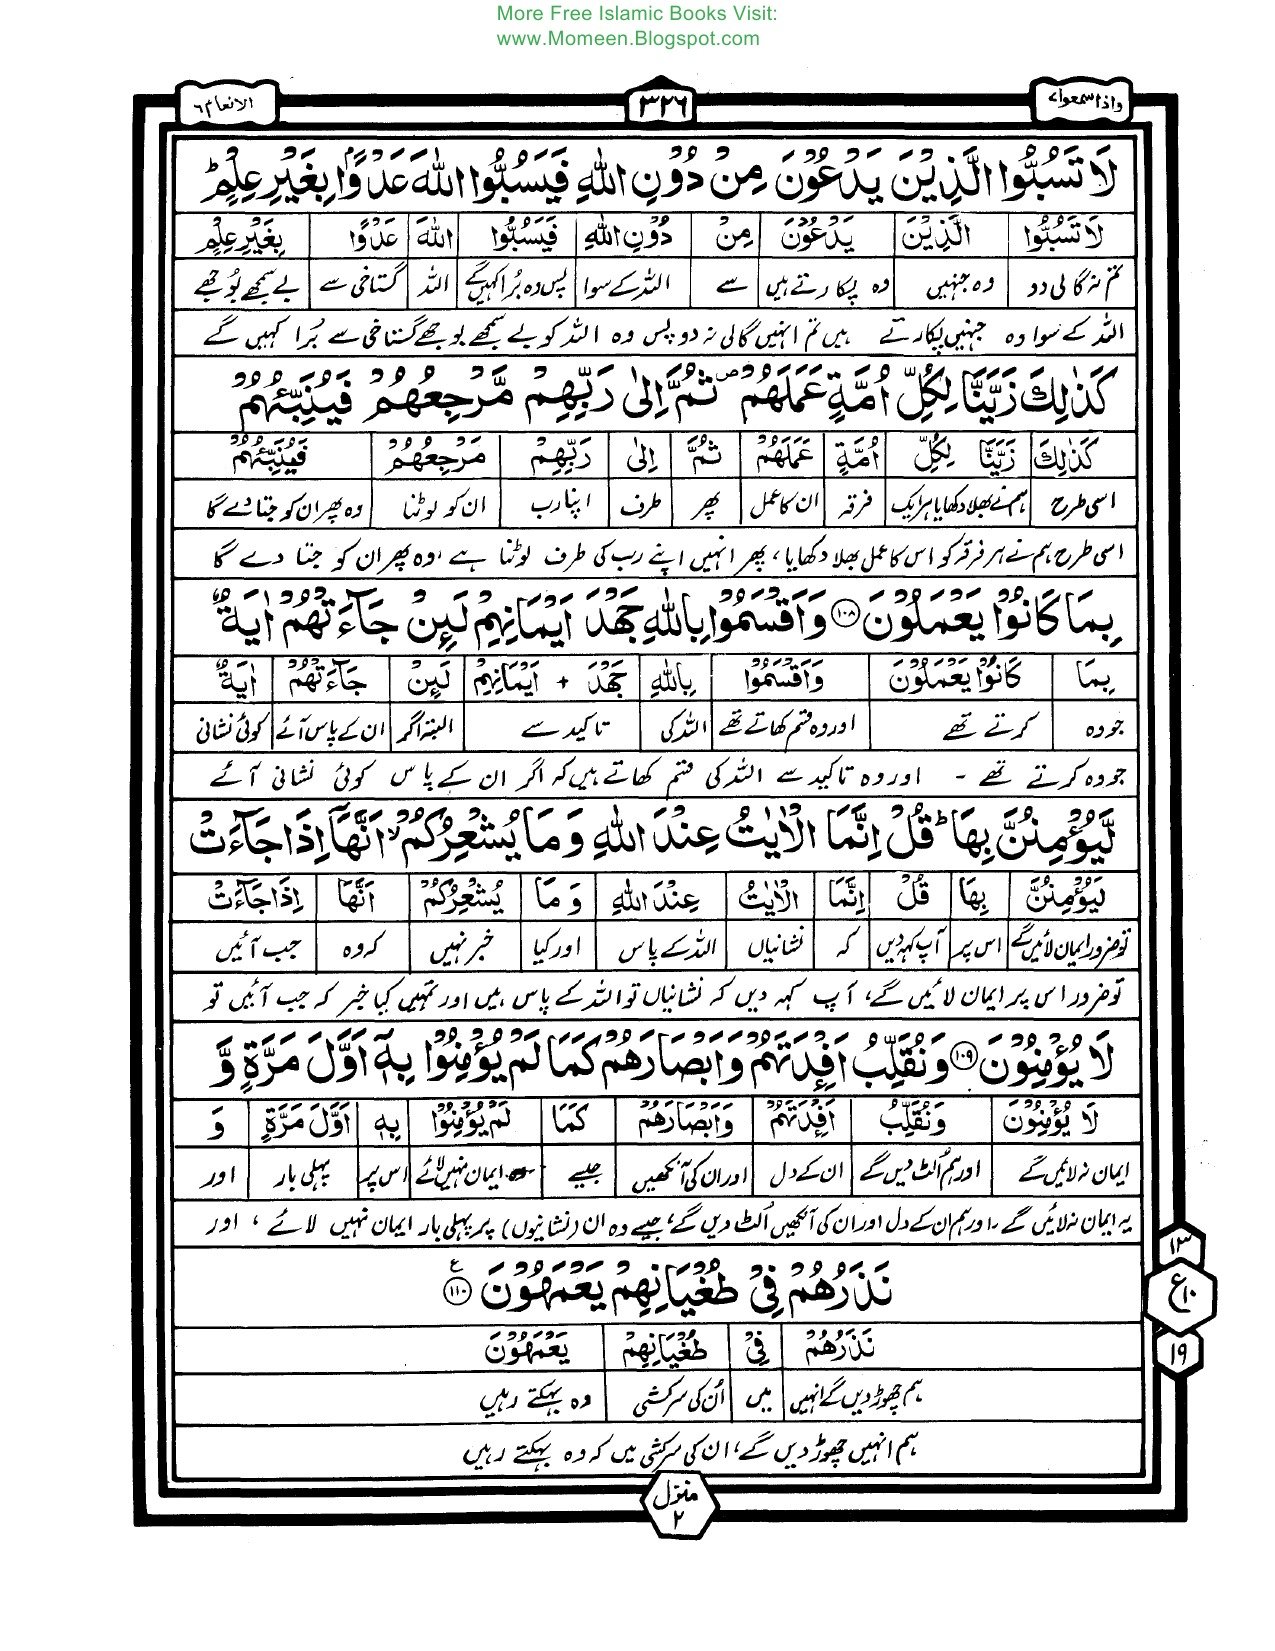 More Free Islamic Books Visit:
www.Momeen.Blogspot.com
واذا سمعوا ۷ ۳۲۶ الانعام ۶
لَا تَسُبُّوا الَّذِيْنَ يَدْعُوْنَ مِنْ دُوْنِ اللّٰهِ فَيَسُبُّوا اللّٰهَ عَدْوًۢا بِغَيْرِ عِلْمٍ ؕ
لَا تَسُبُّوا الَّذِيْنَ يَدْعُوْنَ مِنْ دُوْنِ اللّٰهِ فَيَسُبُّوا اللّٰهَ عَدْوًا بِغَيْرِ عِلْمٍ
تم نہ گالی دو وہ جنہیں وہ پکارتے ہیں سے اللہ کے سوا پس وہ بُرا کہیں گے اللہ گستاخی سے بے سمجھے بُوجھے
اللہ کے سوا وہ جنہیں پکارتے ہیں تم انہیں گالی نہ دو پس وہ اللہ کو بے سمجھے بوجھے گستاخی سے بُرا کہیں گے
كَذٰلِكَ زَيَّنَّا لِكُلِّ اُمَّةٍ عَمَلَهُمْ ۪ ثُمَّ اِلٰى رَبِّهِمْ مَّرْجِعُهُمْ فَيُنَبِّئُهُمْ
كَذٰلِكَ زَيَّنَّا لِكُلِّ اُمَّةٍ عَمَلَهُمْ ثُمَّ اِلٰى رَبِّهِمْ مَرْجِعُهُمْ فَيُنَبِّئُهُمْ
اسی طرح ہم نے بھلا دکھایا ہر ایک فرقہ ان کا عمل پھر طرف اپنا رب ان کو لوٹنا وہ پھر ان کو جتا دے گا
اسی طرح ہم نے ہر فرقہ کو اس کا عمل بھلا دکھایا، پھر انہیں اپنے رب کی طرف لوٹنا ہے، وہ پھر ان کو جتا دے گا
بِمَا كَانُوْا يَعْمَلُوْنَ ۱۰۸ وَاَقْسَمُوْا بِاللّٰهِ جَهْدَ اَيْمَانِهِمْ لَئِنْ جَآءَتْهُمْ اٰيَةٌ
بِمَا كَانُوْا يَعْمَلُوْنَ وَاَقْسَمُوْا بِاللّٰهِ جَهْدَ + اَيْمَانِهِمْ لَئِنْ جَآءَتْهُمْ اٰيَةٌ
جو وہ کرتے تھے اور وہ قسم کھاتے تھے اللہ کی تاکید سے البتہ اگر ان کے پاس آئے کوئی نشانی
جو وہ کرتے تھے - اور وہ تاکید سے اللہ کی قسم کھاتے ہیں کہ اگر ان کے پاس کوئی نشانی آئے
لَّيُؤْمِنُنَّ بِهَا ؕ قُلْ اِنَّمَا الْاٰيٰتُ عِنْدَ اللّٰهِ وَمَا يُشْعِرُكُمْ ۙ اَنَّهَاۤ اِذَا جَآءَتْ
لَيُؤْمِنُنَّ بِهَا قُلْ اِنَّمَا الْاٰيٰتُ عِنْدَ اللّٰهِ وَمَا يُشْعِرُكُمْ اَنَّهَاۤ اِذَا جَآءَتْ
تو ضرور ایمان لائیں گے اس پر آپ کہہ دیں کہ نشانیاں اللہ کے پاس اور کیا خبر نہیں کہ وہ جب آئیں
تو ضرور اس پر ایمان لائیں گے، آپ کہہ دیں کہ نشانیاں تو اللہ کے پاس ہیں اور تمہیں کیا خبر کہ جب آئیں تو
لَا يُؤْمِنُوْنَ ۱۰۹ وَنُقَلِّبُ اَفْـِٕدَتَهُمْ وَاَبْصَارَهُمْ كَمَا لَمْ يُؤْمِنُوْا بِهٖۤ اَوَّلَ مَرَّةٍ وَّ
لَا يُؤْمِنُوْنَ وَنُقَلِّبُ اَفْـِٕدَتَهُمْ وَاَبْصَارَهُمْ كَمَا لَمْ يُؤْمِنُوْا بِهٖ اَوَّلَ مَرَّةٍ وَ
ایمان نہ لائیں گے اور ہم اُلٹ دیں گے ان کے دل اور ان کی آنکھیں جیسے ایمان نہیں لائے اس پر پہلی بار اور
یہ ایمان نہ لائیں گے، اور ہم ان کے دل اور ان کی آنکھیں اُلٹ دیں گے، جیسے وہ ان (نشانیوں) پر پہلی بار ایمان نہیں لائے، اور
نَذَرُهُمْ فِيْ طُغْيَانِهِمْ يَعْمَهُوْنَ ۱۱۰ ع
نَذَرُهُمْ فِيْ طُغْيَانِهِمْ يَعْمَهُوْنَ
ہم چھوڑ دیں گے انہیں میں اُن کی سرکشی وہ بہکتے رہیں
ہم انہیں چھوڑ دیں گے، ان کی سرکشی میں کہ وہ بہکتے رہیں
۱۳
ع ۱۰
۱۹
منزل ۲